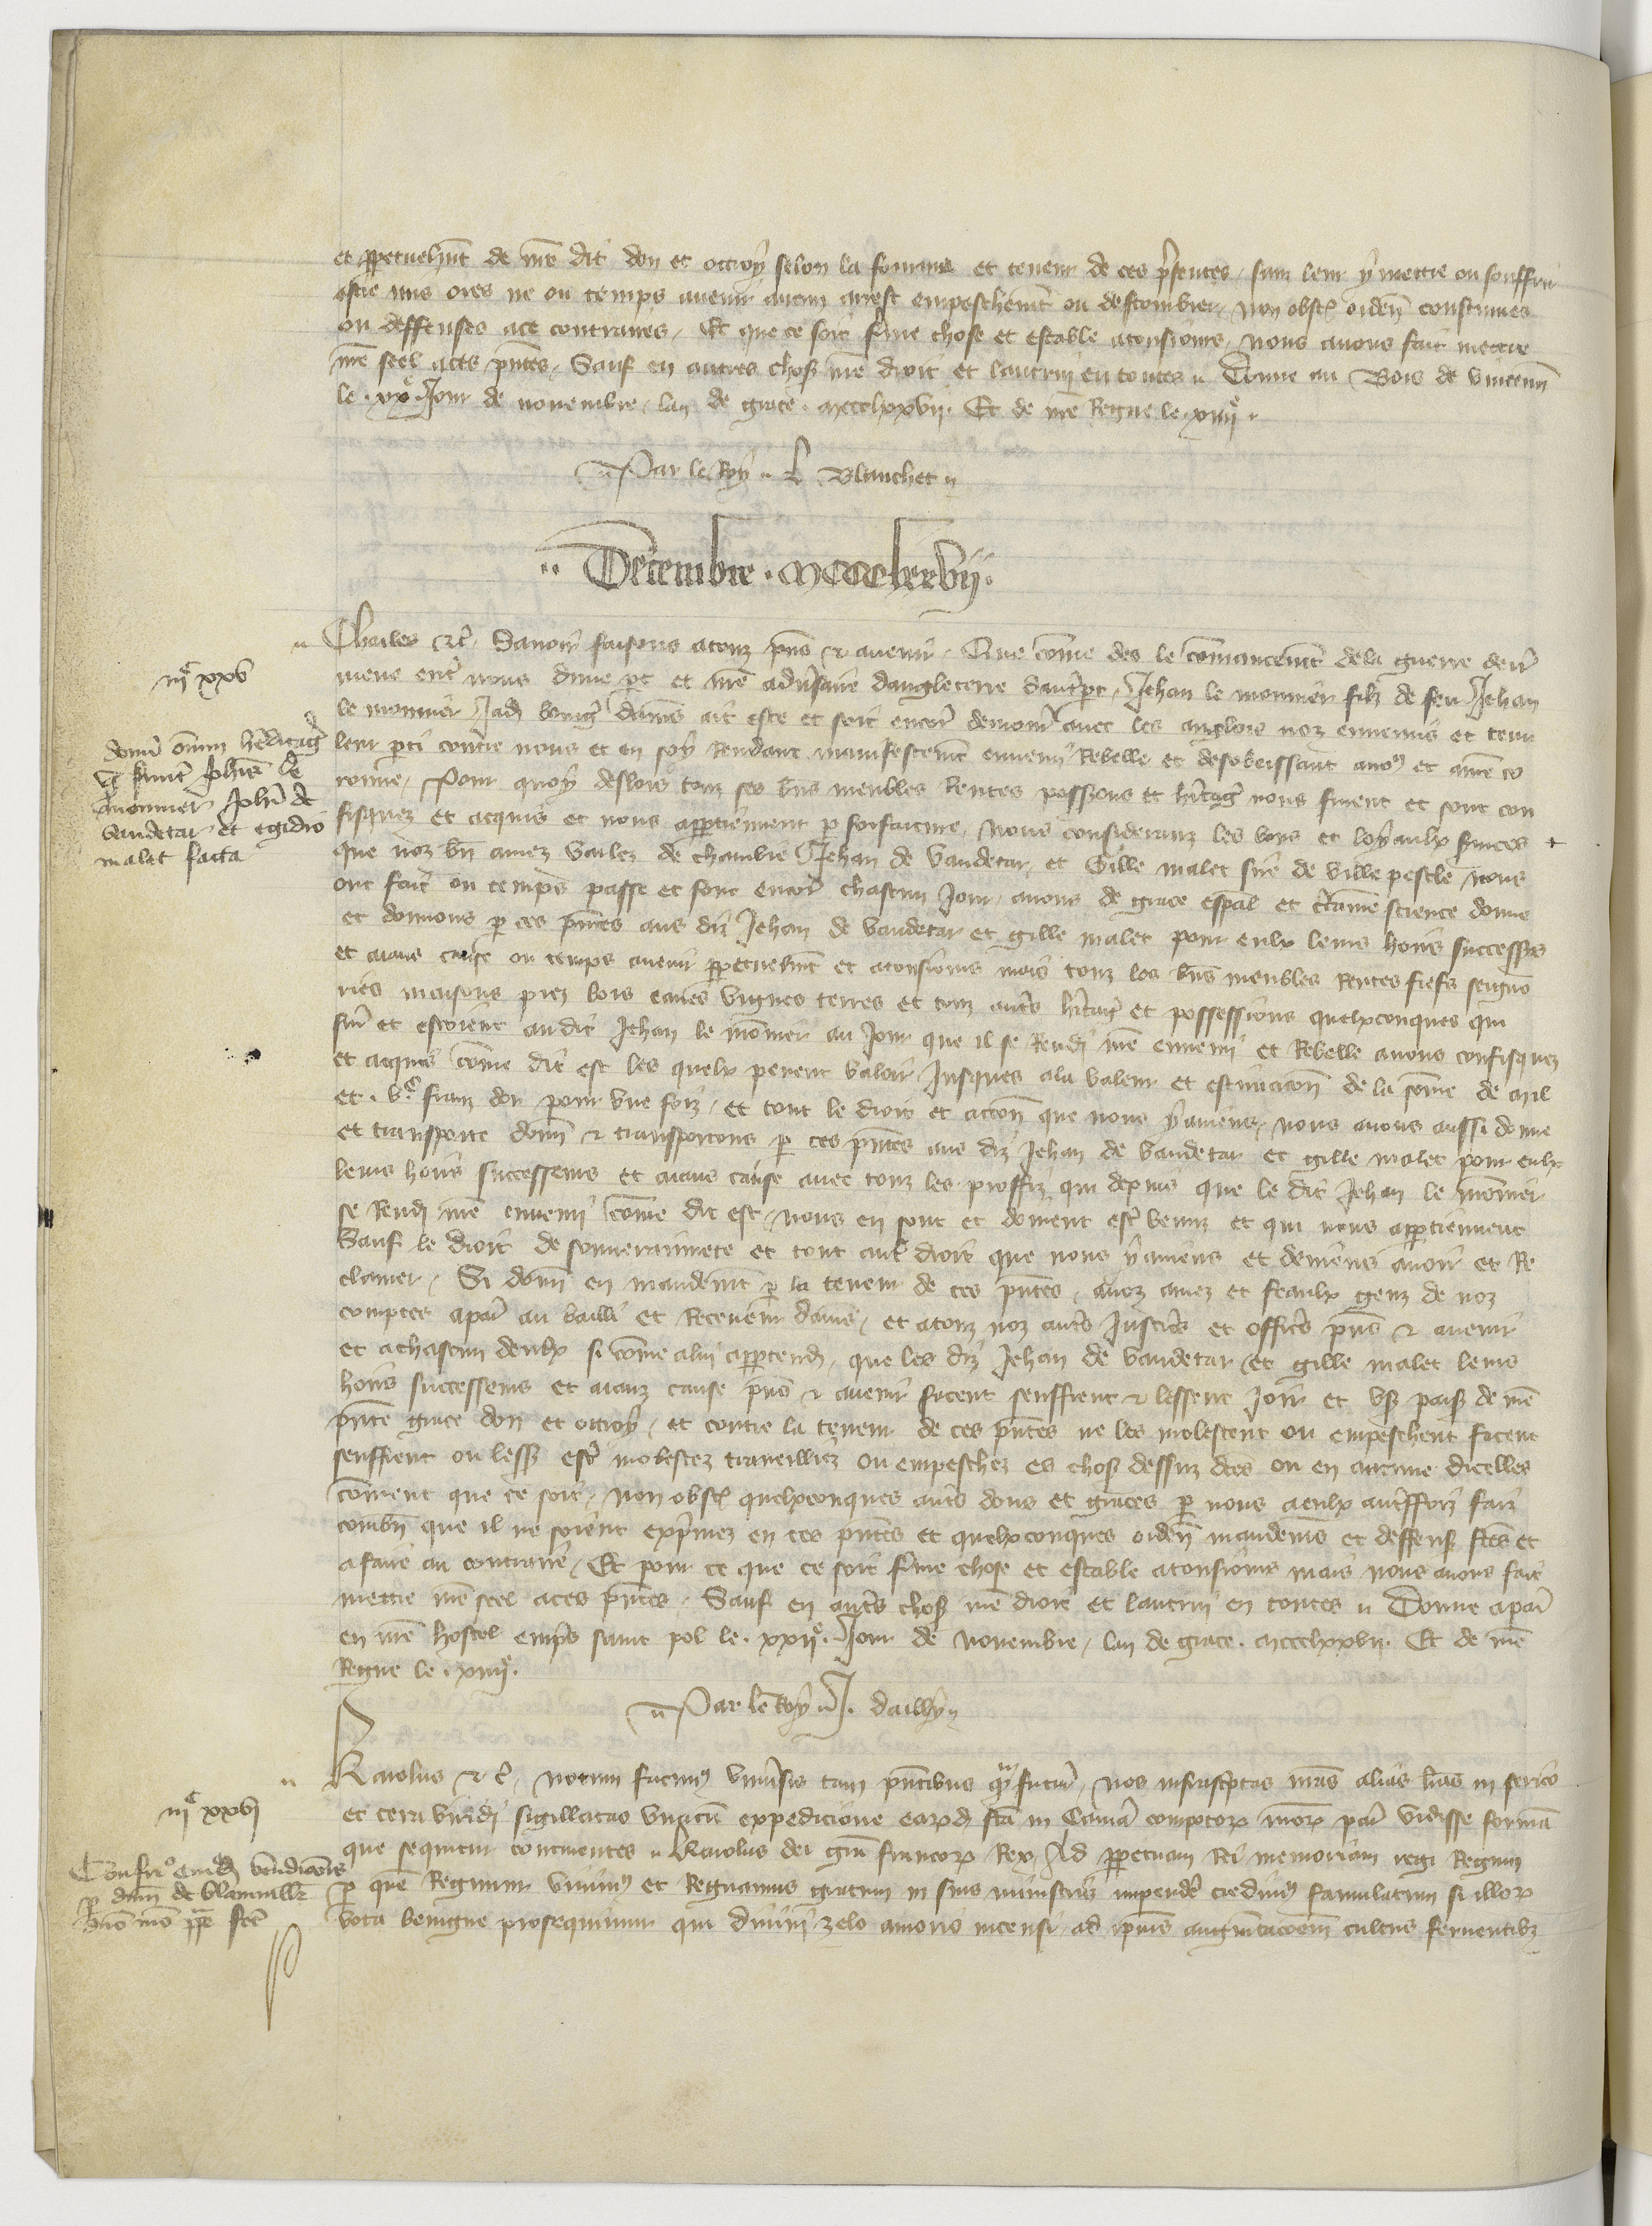 et perpetuelmt de nre dit don et octroy selon la fourme et teneur de ces presentes sanz leur y mettre ou souffrir
estre mis ores ne ou temps avenir aucun arrest empeschemt ou destourbier non obst orden coustumes
ou deffenses ace contraires Et que ce soit ferme chose et estable atousiours nous avons fait mettre
nre seel aces pntes Sauf en autres choses nre droit et lautruy en toutes Donne au Bois de vincenn
le xxe Jour de novembre lan de grace mccclxxvii Et de nre Regne le xiiiie
Par le Roy L Blanchet
Decembre mccclxxvii
Charles etc Savoir faisons atouz pns et avenir Que come des le comancemt dela guerre derr
meue entre nous dune pt et nre adversaire dangleterre dautre pt Jehan le monnier filz de feu Jehan
iiic xxv
le monnier Jadis bourg damiens ait este et soit encor demoure avec les anglois noz ennemis et tenu
leur parti contre nous et en soy Rendant manifestemt ennemi Rebelle et desobeissant anous et anre co
donu omium hereditag
que fuerunt Johis le
monnier Johi de
vaudetar et egidio
malet facta
ronne Pour quoy deslors touz ses biens meubles Rentes possessions et heritages nous furent et sont con
fisquez et acquis et nous appartiennent par forfaicture Nous considerans les bons et loyaulx services
que noz bn amez varlez de chambre Jehan de vaudetar et Gille malet sire de ville pescle nous
ont faiz ou temps passe et font encor chascun Jour avons de grace espal et certaine science donne
et donnons par ces pntes aus diz Jehan de vaudetar et gille malet pour eulx leurs hoirs successeurs
et aians cause ou temps avenir perpetuelmt et atousiours mais touz les bns meubles Rentes fiefs seigno
ries maisons prez bois eaues vignes terres et touz autres heritages et possessions quelxconques qui
furent et estoient audit Jehan le monnier au Jour que il se Rendi nre ennemi et Rebelle avons confisquez
et acquis come dit est les quelx pevent valoir Jusques ala valeur et estimacion de la some de mil
et vc frans dor pour une foiz et tout le droit et accion que nous y aviens nous avons aussi donne
et transporte donn et transportons par ces pntes aus diz Jehan de vaudetar et gille malet pour eulx
leurs hoirs successeurs et aians cause avec touz les proffiz qui depuis que le dit Jehan le monnier
se Rendi nre ennemi come dit est nous en sont et doivent estre venuz et qui nous appartiennent
Sauf le droit de souverainnete et tout autre droit que nous y aviens et deviens avoir et Re
clamer Si donn en mandemt par la teneur de ces pntes anoz amez et feaulx genz de noz
comptes apar au bailli et Receveur damiens et atouz noz autres Justiciers et officiers pns et avenir
et achascun deulx si come alui appartendra que les diz Jehan de vaudetar et gille malet leurs
hoirs successeurs et aianz cause pns et avenir facent seuffrent et lessent Joir et user paisiblement de nre
pnte grace don et octroy et contre la teneur de ces pntes ne les molestent ou empeschent facent
seuffrent ou lessent estre molestez travailliez ou empeschez es choses dessus dtes ou en aucune dicelles
coment que ce soit non obst quelxconques autres dons et graces par nous aeulx autreffoiz faiz
combn que il ne soient exprimez en ces pntes et quelxconques orden mandemens et deffenses ftes et
afaire au contraire Et pour ce que ce soit ferme chose et estable atousiours mais nous avons fait
mettre nre seel aces pntes Sauf en autres choses nre droit et lautruy en toutes Donne apar
en nre hostel empres saint pol le xxiie Jour de novembre lan de grace mccclxxvii Et de nre
Regne le xiiiie
Par le Roy J dailly
Karolus etc Notum facimus universis tam pntibus quam futur Nos infrascriptas nras alias lras in serico
iiic xxvi
et cera viridi sigillatas unacum expedicione earumd fca in Camera compotorum nrorum par vidisse formam
que sequitur continentes Karolus dei gra francorum Rex Ad perpetuam Rei memoriam regi Regum
Confir cuiusd vendicois
per dnm de blainville
dno nro
per quem Regnum vivimus et Regnamus gratum in suis ministris impendere credimus famulatum si illorum
vota benigne prosequimur qui divini zelo amoris incensi ad ipsius augmentacoem cultus ferventibus